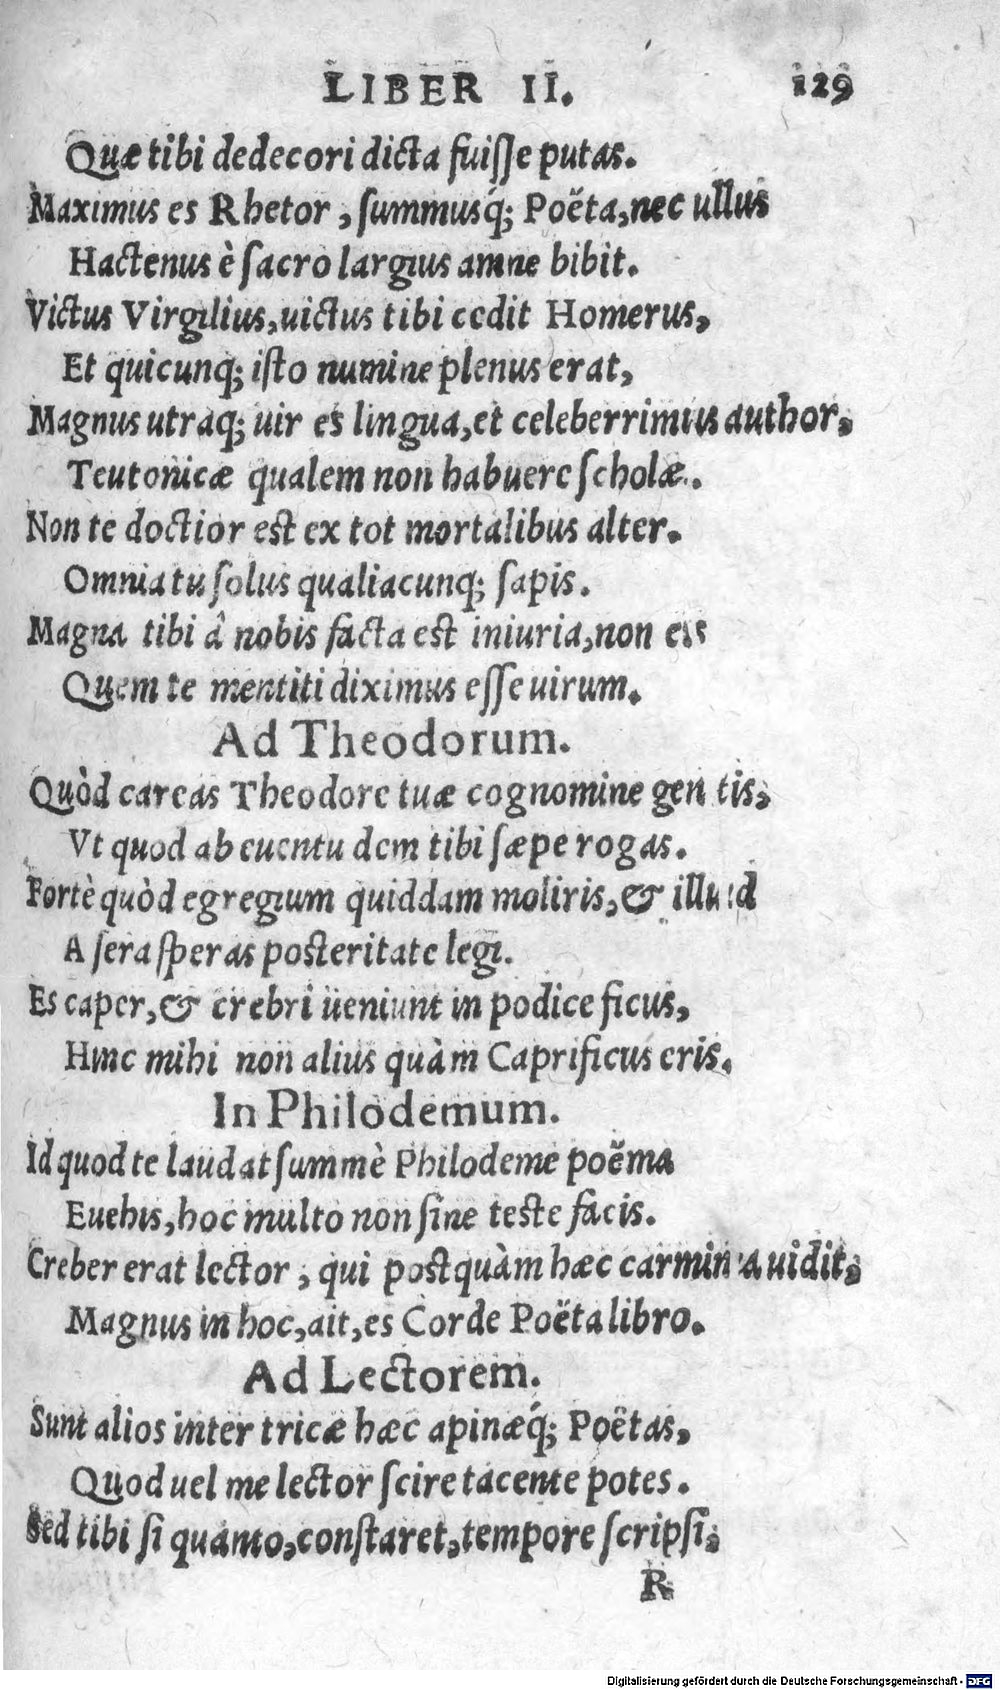 LIBER II. 129
Quæ tibi dedecori dicta fuiſſe putas.
Maximus es Rhetor, ſummusq́; Poëta, nec ullus
Hactenus è ſacro largius amne bibit.
Victus Virgilius, uictus tibi cedit Homerus,
Et quicunq; iſto numine plenus erat,
Magnus utraq; uir es lingua, et celeberrimus author,
Teutonicæ qualem non habuere ſcholæ.
Non te doctior est ex tot mortalibus alter.
Omnia tu ſolus qualiacunq; ſapis.
Magna tibi â nobis facta est iniuria, non es
Quem te mentiti diximus eſſe uirum.
Ad Theodorum.
Quòd careas Theodore tuæ cognomine gentis,
Vt quod ab euentu dem tibi ſæpe rogas.
Fortè quòd egregium quiddam moliris, & illud
A ſera ſperas posteritate legi.
Es caper, & crebri ueniunt in podice ficus,
Hinc mihi non alius quàm Caprificus eris.
In Philodemum.
Id quod te laudat ſummè Philodeme poëma
Euehis, hoc multo non ſine teste facis.
Creber erat lector, qui postquàm hæc carmina uidit,
Magnus in hoc, ait, es Corde Poëta libro.
Ad Lectorem.
Sunt alios inter tricæ hæc apinæq́; Poëtas,
Quod uel me lector ſcire tacente potes.
Sed tibi ſi quanto, conſtaret, tempore ſcripſi,
R
Digitalisierung gefördert durch die Deutsche Forschungsgemeinschaft - DFG